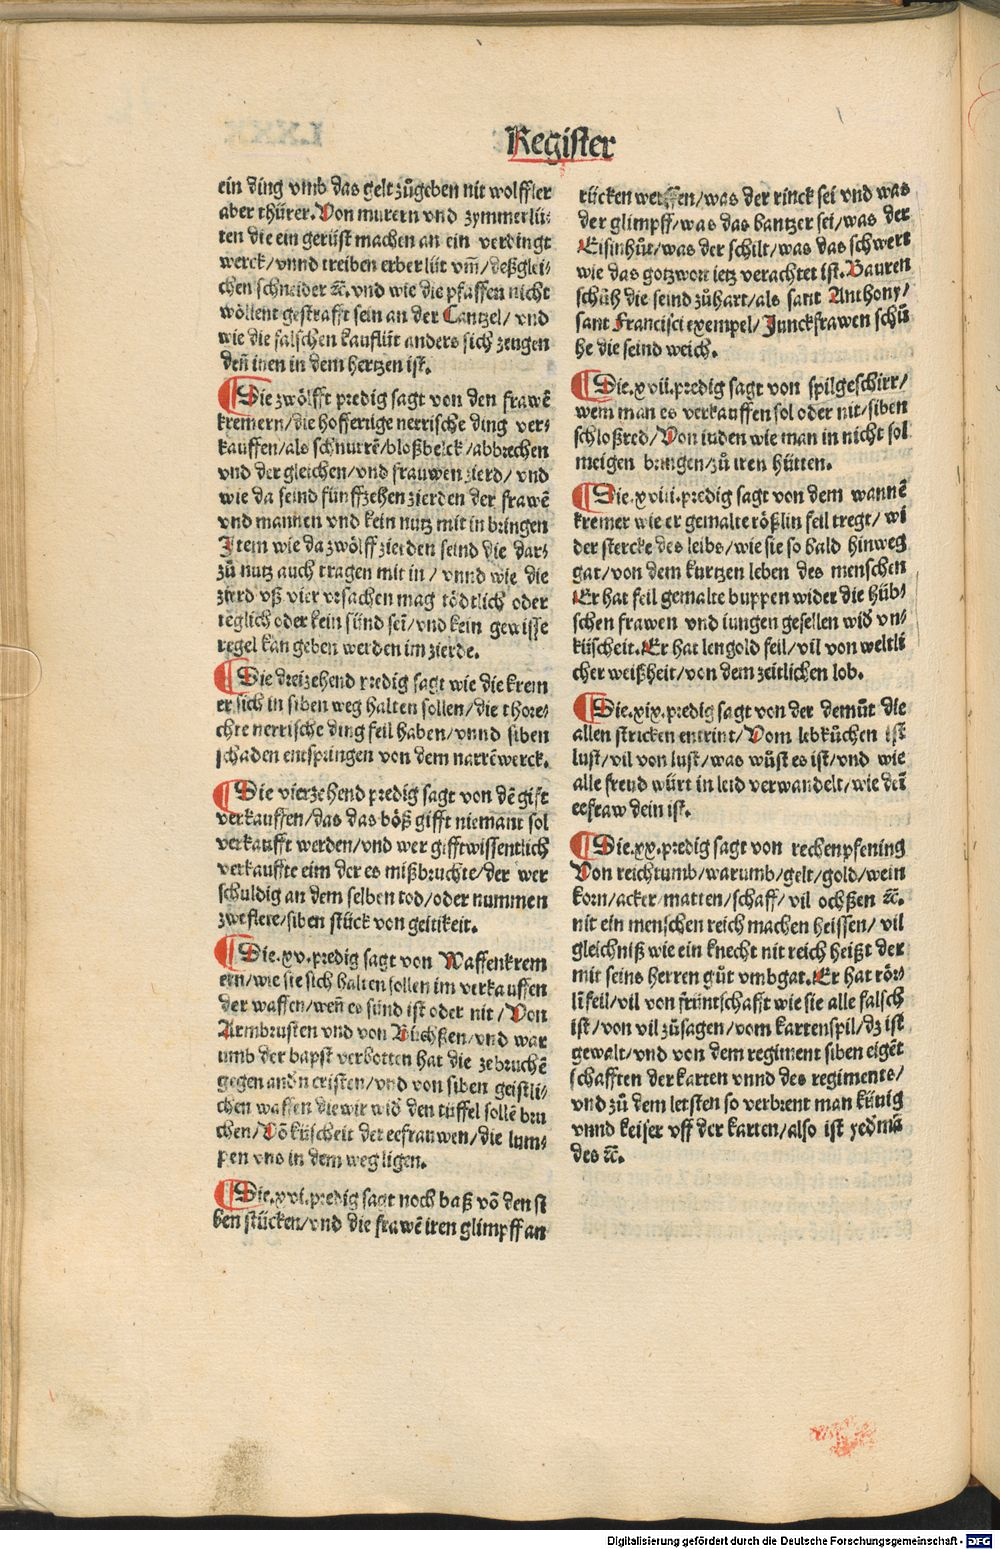 Register
ein ding vmb das gelt zůgeben nit wolffler
aber thürer. Von murern vnd zymmerlü⸗
ten die ein gerüst machen an ein verdingt
werck/vnnd treiben erber lüt vm̄/deßglei⸗
chen schneider ⁊c̄. vnd wie die pfaffen nicht
wöllent gestrafft sein an der Cantzel/ vnd
wie die falschen kauflüt anders sich zeugen
deñ inen in dem hertzen ist.
¶Die zwölfft predig sagt von den frawē
kremern/die hoffertige nerrische ding ver⸗
kauffen/als schnurrē/bloßbelck/abbrechen
vnd der gleichen/vnd frauwen zierd/ vnd
wie da seind fünffzehen zierden der frawē
vnd mannen vnd kein nutz mit in bringen
Item wie da zwölff zierden seind die dar⸗
zů nutz auch tragen mit in/ vnnd wie die
zierd vß vier vrsachen mag tödtlich oder
teglich oder kein sünd sei/vnd kein gewisse
regel kan geben werden im zierde.
¶Die dreizehend predig sagt wie die krem
er sich in siben weg halten sollen/die thore⸗
chte nerrische ding feil haben/vnnd siben
schaden entspringen von dem narrēwerck.
¶Die vierzehend predig sagt von dē gift
verkauffen/das das böß gifft niemant sol
verkaufft werden/vnd wer gifft wissentlich
verkauffte eim der es mißbruchte/der wer
schuldig an dem selben tod/oder nummen
zweflete/siben stück von geitikeit.
¶Die.xv.predig sagt von Waffenkrem
ern/wie sie sich halten sollen im verkauffen
der waffen/weñ es sünd ist oder nit/Von
Armbrusten vnd von Büchßen/vnd war
umb der bapst verbotten hat die zebruchē
gegen andn̄ cristen/vnd von siben geistli⸗
chen waffen die wir wid̄ den tüffel sollē bru
chen/Vō küscheit der eefrauwen/die lum⸗
pen vns in dem weg ligen.
¶Die.xvi.predig sagt noch baß vō den si
ben stücken/vnd die frawē iren glimpff an
rücken werffen/was der rinck sei vnd was
der glimpff/was das bantzer sei/was der
Eisinhůt/was der schilt/was das schwert
wie das gotzwort ietz verachtet ist. Bauren
schůh die seind zůhart/als sant Anthony/
sant Francisci exempel/ Junckfrawen schů
he die seind weich.
¶Die.xvii.predig sagt von spilgeschirr/
wem man es verkauffen sol oder nit/siben
schloßred/Von iuden wie man in nicht sol
meigen bringen/zů iren hütten.
¶Die.xviii.predig sagt von dem wannē
kremer wie er gemalte rößlin feil tregt/ wi
der stercke des leibs/wie sie so bald hinweg
gat/von dem kurtzen leben des menschen
Er hat feil gemalte buppen wider die hüb⸗
schen frawen vnd iungen gesellen wid̄ vn⸗
küscheit. Er hat lengold feil/vil von weltli
cher weißheit/von dem zeitlichen lob.
¶Die.xix.predig sagt von der demůt die
allen stricken entrint/Vom lebkůchen ist
lust/vil von lust/was wůst es ist/vnd wie
alle freud würt in leid verwandelt/wie dei
eefraw dein ist.
¶Die.xx.predig sagt von rechenpfening
Von reichtumb/warumb/gelt/gold/wein
korn/acker/matten/schaff/ vil ochßen ⁊c̄.
nit ein menschen reich machen heissen/ vil
gleichniß wie ein knecht nit reich heißt der
mit seins herren gůt vmbgat. Er hat rör⸗
lī feil/vil von früntschafft wie sie alle falsch
ist/von vil zůsagen/vom kartenspil/dz ist
gewalt/vnd von dem regiment siben eigēt
schafften der karten vnnd des regiments/
vnd zů dem letsten so verbrent man künig
vnnd keiser vff der karten/also ist yed̄mā
des ⁊c̄.
Digitalisierung gefördert durch die Deutsche Forschungsgemeinschaft - DFG